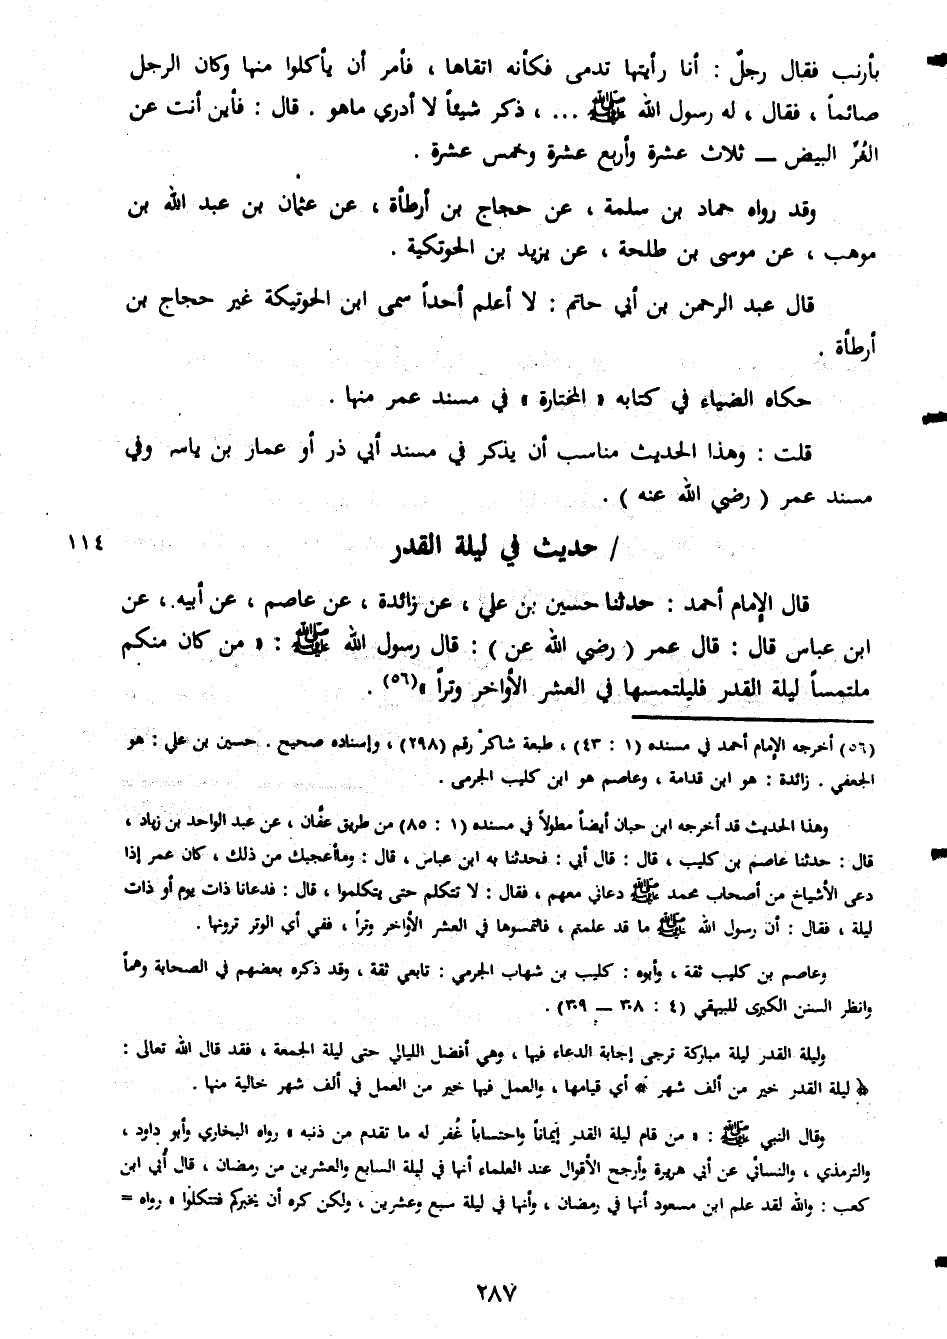 بأرنب فقال رجلٌ : أنا رأيتها تدمى فكأنه اتقاها ، فأمر أن يأكلوا منها وكان الرجل
صائماً ، فقال ، له رسول الله ﷺ ... ، ذكر شيئاً لا أدري ماهو . قال : فأين أنت عن
الغُرّ البيض — ثلاث عشرة وأربع عشرة وخمس عشرة .
وقد رواه حماد بن سلمة ، عن حجاج بن أرطأة ، عن عثمان بن عبد الله بن
موهب ، عن موسى بن طلحة ، عن يزيد بن الحوتكية .
قال عبد الرحمن بن أبي حاتم : لا أعلم أحداً سمى ابن الحوتيكة غير حجاج بن
أرطأة .
حكاه الضياء في كتابه « المختارة » في مسند عمر منها .
قلت : وهذا الحديث مناسب أن يذكر في مسند أبي ذر أو عمار بن ياسه وفي
مسند عمر ( رضي الله عنه ) .
١١٤ / حديث في ليلة القدر
قال الإمام أحمد : حدثنا حسين بن علي ، عن زائدة ، عن عاصم ، عن أبيه ، عن
ابن عباس قال : قال عمر ( رضي الله عن ) : قال رسول الله ﷺ : « من كان منكم
ملتمساً ليلة القدر فليلتمسها في العشر الأواخر وتراً »(٥٦) .
(٥٦) أخرجه الإمام أحمد في مسنده (١ : ٤٣) ، طبعة شاكر رقم (٢٩٨) ، وإسناده صحيح . حسين بن علي : هو
الجعفي . زائدة : هو ابن قدامة ، وعاصم هو ابن كليب الجرمى .
وهذا الحديث قد أخرجه ابن حبان أيضاً مطولاً في مسنده (١ : ٨٥) من طريق عفّان ، عن عبد الواحد بن زياد ،
قال : حدثنا عاصم بن كليب ، قال : قال أبي : فحدثنا به ابن عباس ، قال : وماأعجبك من ذلك ، كان عمر إذا
دعى الأشياخ من أصحاب محمد ﷺ دعاني معهم ، فقال : لا تتكلم حتى يتكلموا ، قال : فدعانا ذات يوم أو ذات
ليلة ، فقال : أن رسول الله ﷺ ما قد علمتم ، فالتمسوها في العشر الأواخر وتراً ، ففي أي الوتر ترونها .
وعاصم بن كليب ثقة ، وأبوه : كليب بن شهاب الجرمي : تابعي ثقة ، وقد ذكره بعضهم في الصحابة وهماً
وانظر السنن الكبرى للبيهقي (٤ : ٣٠٨ — ٣٠٩) .
وليلة القدر ليلة مباركة ترجى إجابة الدعاء فيها ، وهي أفضل الليالي حتى ليلة الجمعة ، فقد قال الله تعالى :
﴿ ليلة القدر خير من ألف شهر ﴾ أي قيامها ، والعمل فيها خير من العمل في ألف شهر خالية منها .
وقال النبي ﷺ : « من قام ليلة القدر إيماناً واحتساباً غُفر له ما تقدم من ذنبه » رواه البخاري وأبو داود ،
والترمذي ، والنسائي عن أبي هريرة وأرجح الأقوال عند العلماء أنها في ليلة السابع والعشرين من رمضان ، قال أُبي ابن
كعب : والله لقد علم ابن مسعود أنها في رمضان ، وأنها في ليلة سبع وعشرين ، ولكن كره أن يخبركم فتتكلوا » رواه =
٢٨٧